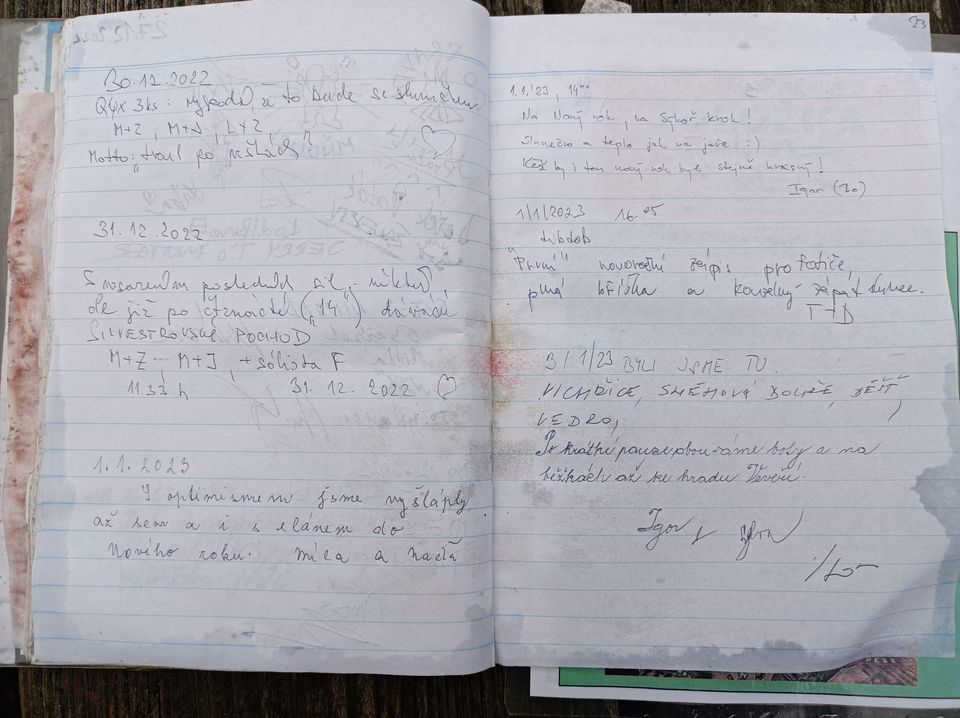 30.12.2022
Q4x 3ks: vypadá, že to bude se sluníčkem
M+Z, M+J, L+Z,
Motto: "trail po
31.12.2022
S nasazením posledních sil,
ale již po čtrnácté ("14") dáváme
SILVESTROVSKÝ POCHOD
M+Z - M+J, + sólista F
11.33 h 31. 12. 2022
1.1.2023
S optimismem jsme vyšlápli
až sem a i s elánem do
Nového roku. Míla a Naďa
23
1.1.'23, 14⁰⁰
Na Nový rok, na Sýkoř krok!
Slunečno a teplo jak na jaře :)
Kéž by i ten nový rok byl stejně krásný!
Igor (Bo)
1/1/2023 16.05
"První" novoroční zápis pro fotiče,
plná bříška a kouzelný západ slunce.
T+D
3/1/23 BYLI JSME TU.
VICHŘICE, SNĚHOVÁ BOUŘE, DÉŠŤ,
VEDRO,
Po krátké pauze obouváme boty a na
běžkách až ke hradu Veveří.
Igor